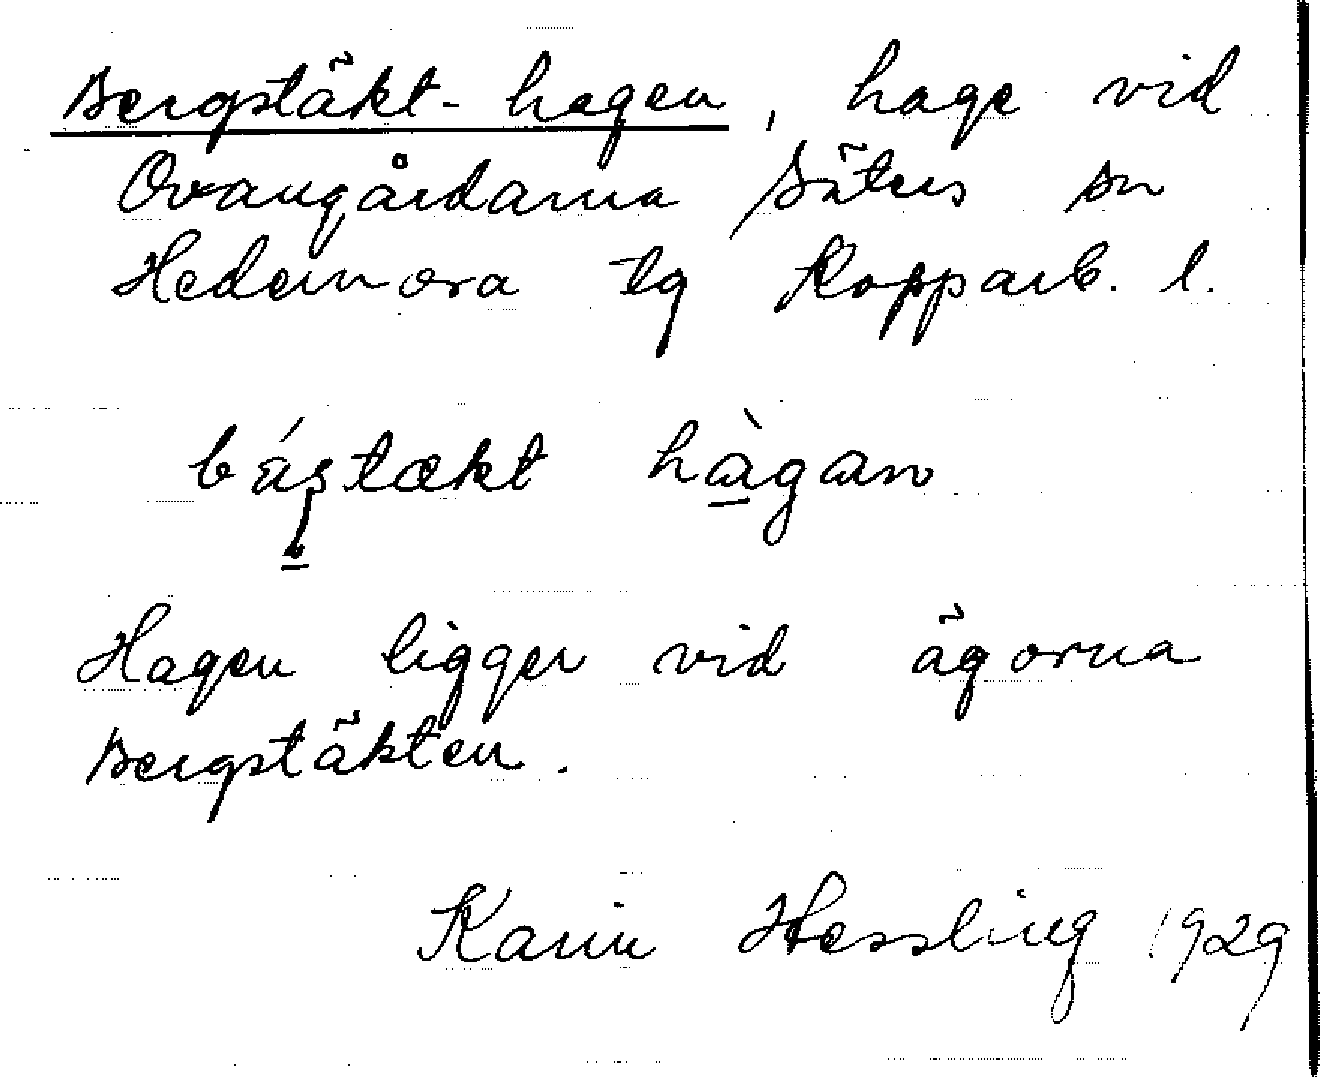 Bergstäkt-hagen, hage vid
Ovangårdarna Säters sn
Hedemora tg Kopparb. l.
hàgan
Hagen ligger vid ägorna
Bergstäkten.
Karin Hessling 1929